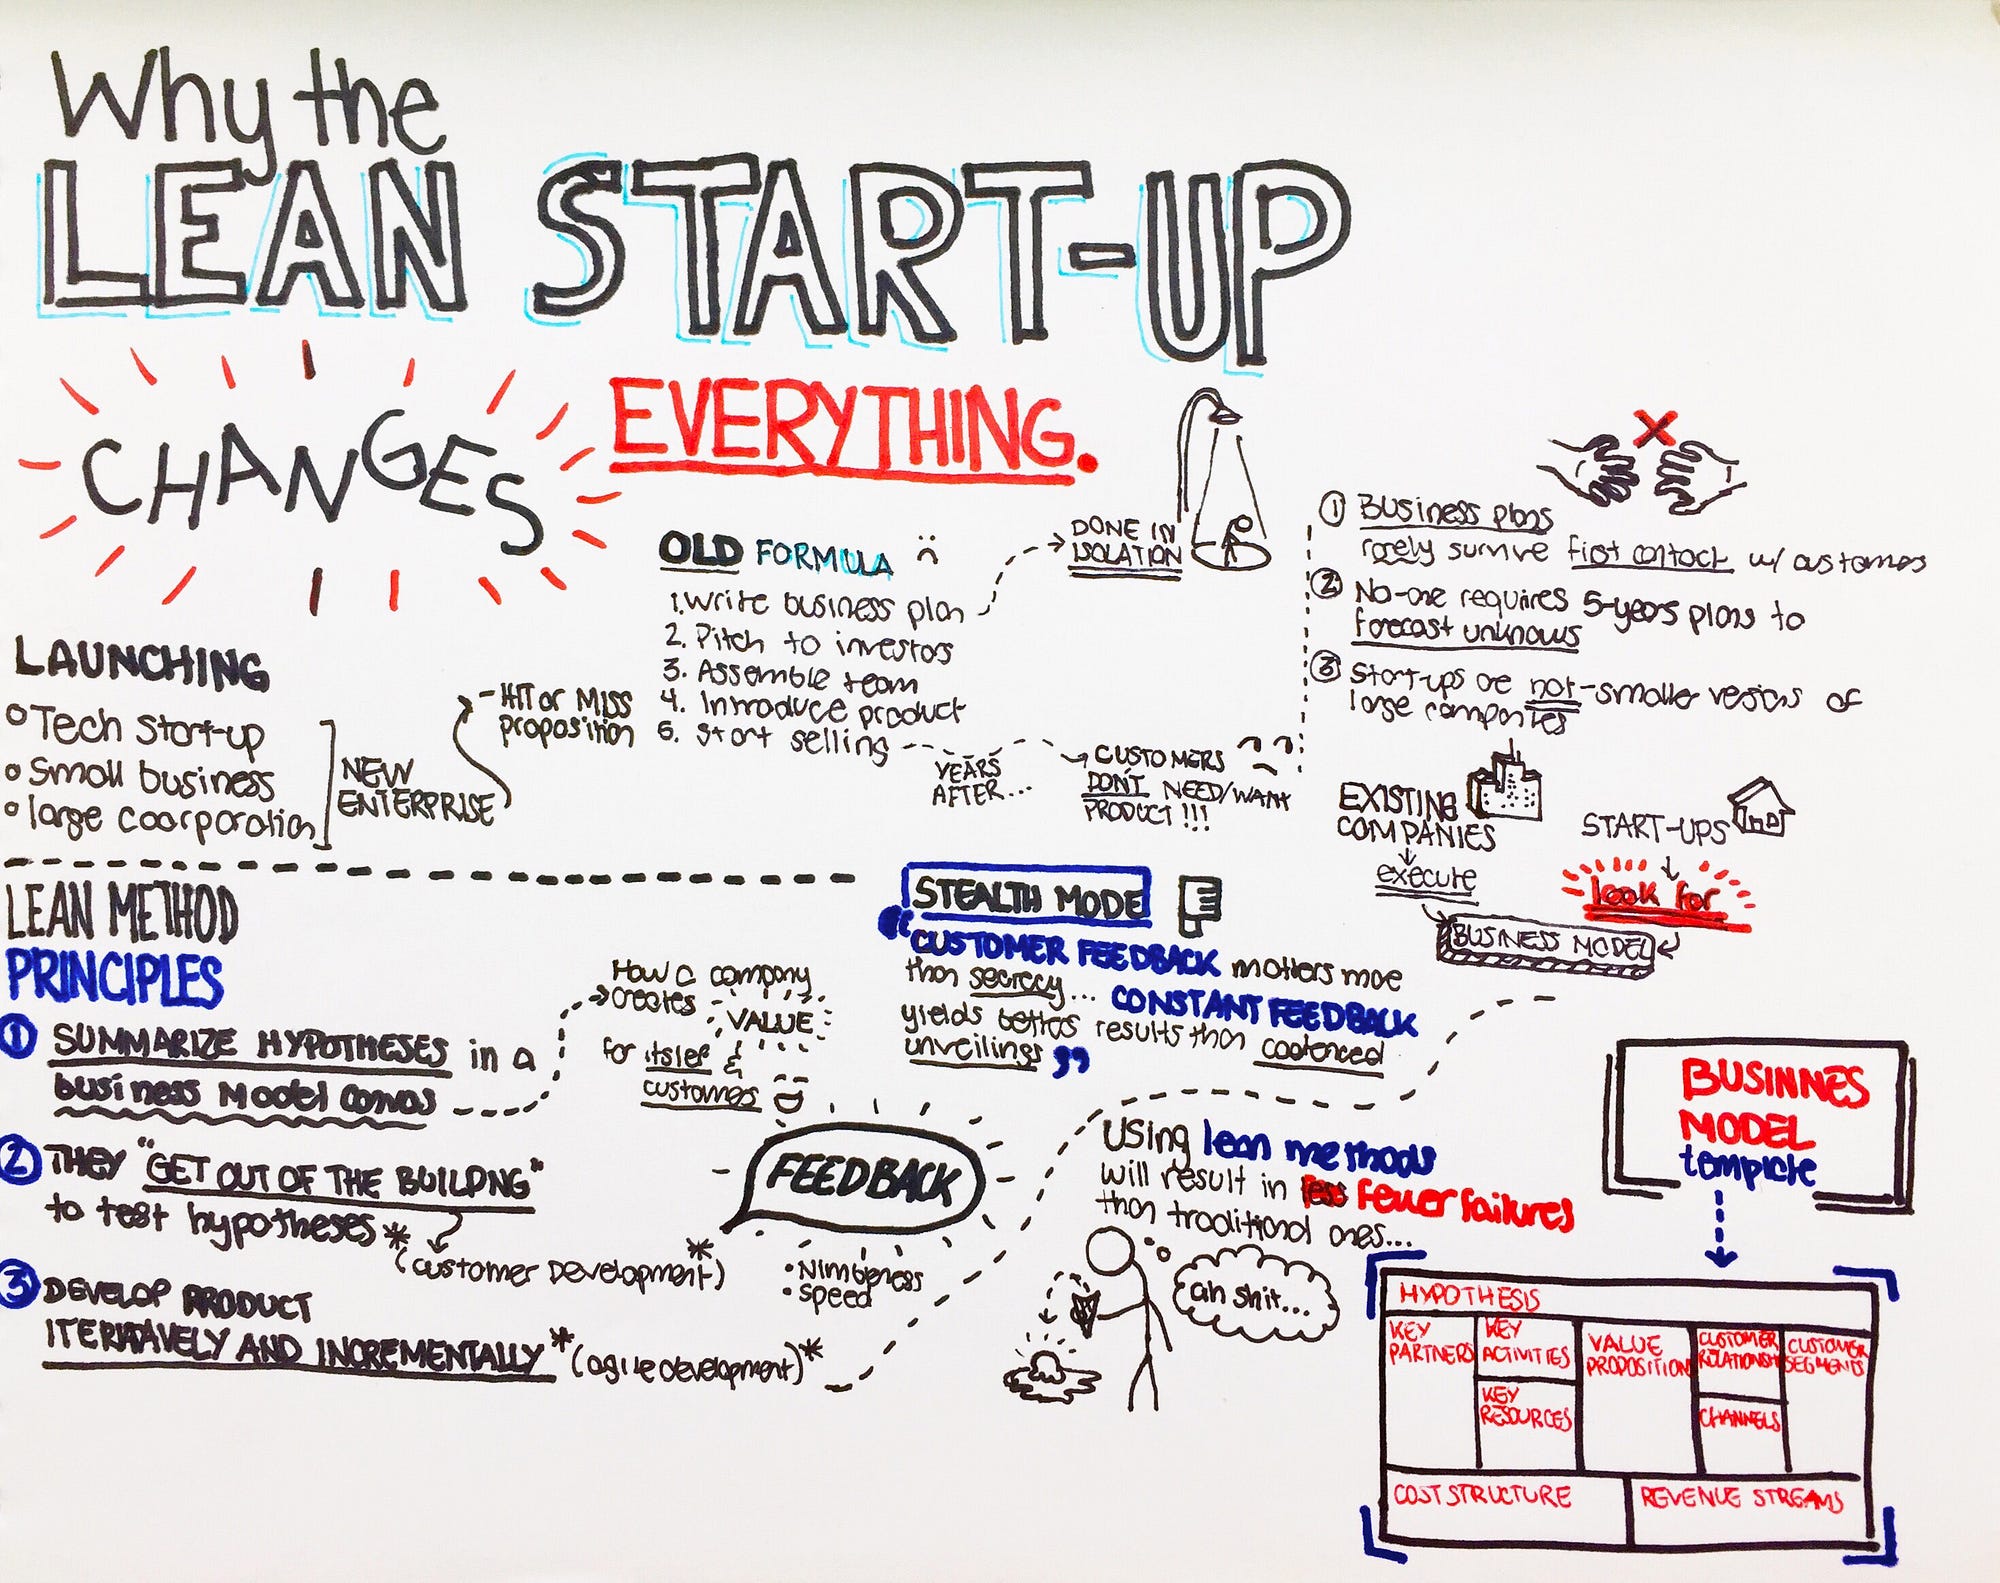 Why the
LEAN START-UP
CHANGES
EVERYTHING.
LAUNCHING
Tech start-up
small business
large coorporation
NEW
ENTERPRISE
- HIT or MISS
proposition
OLD FORMULA
1. Write business plan
2. Pitch to investors
3. Assemble team
4. Introduce product
5. Start selling
DONE IN
ISOLATION
YEARS
AFTER...
CUSTOMERS
DON'T NEED/WANT
PRODUCT!!!
X
1 Business plans
rarely survive first contact w/ customers
2 No-one requires 5-years plans to
forecast unknowns
3 Start-ups are not smaller versions of
large companies
EXISTING
COMPANIES
execute
START-UPS
look for
BUSINESS MODEL
LEAN METHOD
PRINCIPLES
1 SUMMARIZE HYPOTHESES in a
business Model Canvas
How a company
creates
VALUE
for itslef &
customers
2 THEY "GET OUT OF THE BUILDNG"
to test hypotheses*
(customer Development)*
3 DEVELOP PRODUCT
ITERATAVELY AND INCREMENTALLY* (agile development)*
FEEDBACK
• Nimbleness
• speed
STEALTH MODE
"CUSTOMER FEEDBACK matters more
than secrecy... CONSTANT FEEDBACK
yields betters results than
unveilings"
Using lean methods
will result in less fewer failures
than traditional ones...
ah shit...
BUSINNES
MODEL
template
HYPOTHESIS
KEY
PARTNERS
KEY
ACTIVITIES
KEY
RESOURCES
VALUE
PROPOSITION
CUSTOMER
RELATIONSHI
CHANNELS
CUSTOMER
SEGMENTS
COST STRUCTURE
REVENUE STREAMS